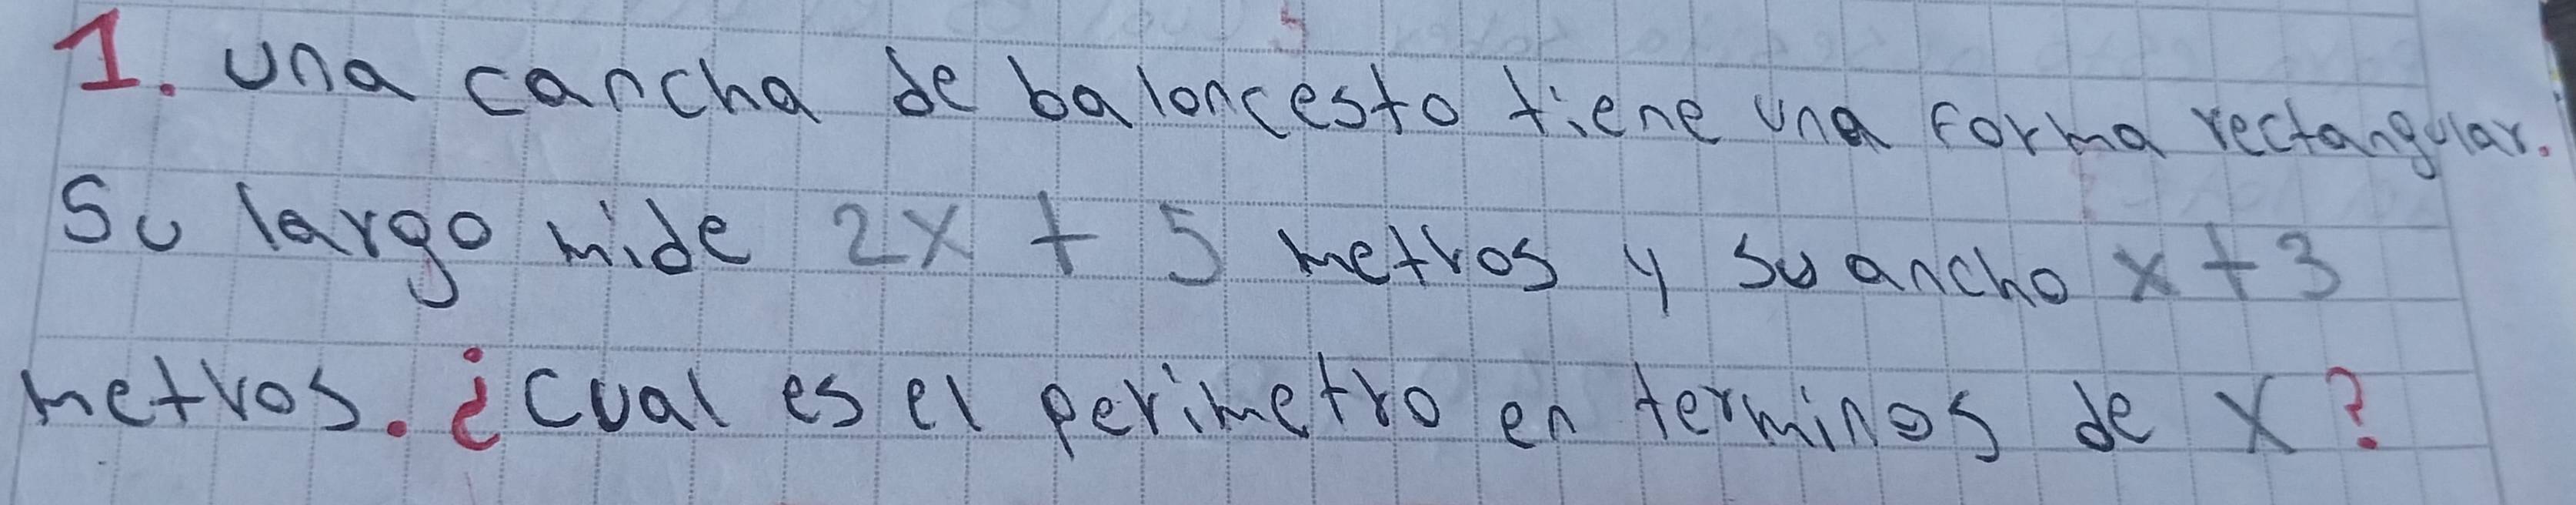 1. Una cancha de baloncesto tiene una forma rectangular.
Su largo mide 2x + 5 metros y su ancho x + 3
metros. ¿cual es el perimetro en terminos de x?